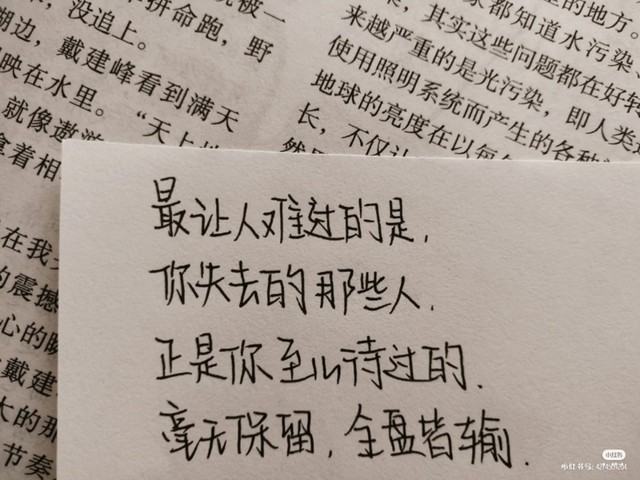 被一
拼命跑，野
，没追上。
湖边，戴建峰看到满天
映在水里。
就像遨游
“天上
拿着相
在我
的震撼
心的
戴建
大的那
节奏
的地方。
家都知道水污染
，其实这些问题都在好转
来越严重的是光污染，即人类
使用照明系统而产生的各种
地球的亮度在以每
长，不仅
最让人难过的是,
你失去的那些人.
正是你至心待过的.
毫无保留,全盘皆输.
小红书
小红书号: